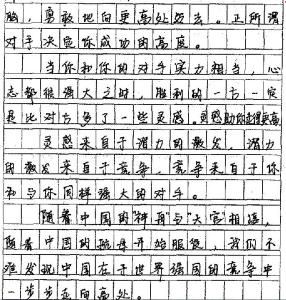 胎，勇敢地向更高处迈去。正所谓
对手决定你成功的高度。
当你和你的对手实力相当，心
志都很强大之时，胜利的一方一定
是比对方多了一些灵感。灵感助你走得更高
灵感来自于潜力的激发，潜力
的激发来自于竞争，竞争来自于你
和与你同样强大的对手。
随着中国的"神舟"与"天宫"相遇，
随着中国的航母开始服役，我们不
难发现中国在于世界强国的竞争中
一步步走向高处。